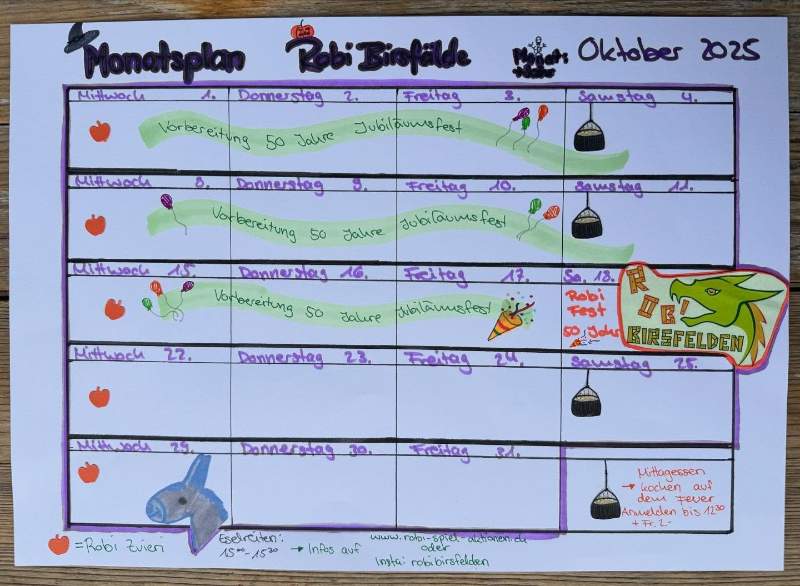 Monatsplan Robi Birsfälde Monat: Oktober 2025
Mittwoch 1. Donnerstag 2. Freitag 3. Samstag 4.
Vorbereitung 50 Jahre Jubiläumsfest
Mittwoch 8. Donnerstag 9. Freitag 10. Samstag 11.
Vorbereitung 50 Jahre Jubiläumsfest
Mittwoch 15. Donnerstag 16. Freitag 17. Sa. 18.
Vorbereitung 50 Jahre Jubiläumsfest
Robi
Fest
50 Jahr
ROBI
BIRSFELDEN
Mittwoch 22. Donnerstag 23. Freitag 24. Samstag 25.
Mittwoch 29. Donnerstag 30. Freitag 31.
Mittagessen
→ kochen auf
dem Feuer
Anmelden bis 12³⁰
+ Fr. 2.-
= Robi Zvieri
Eselreiten:
15⁰⁰-15³⁰ → Infos auf
www.robi-spiel-aktionen.ch
oder
Insta: robibirsfelden